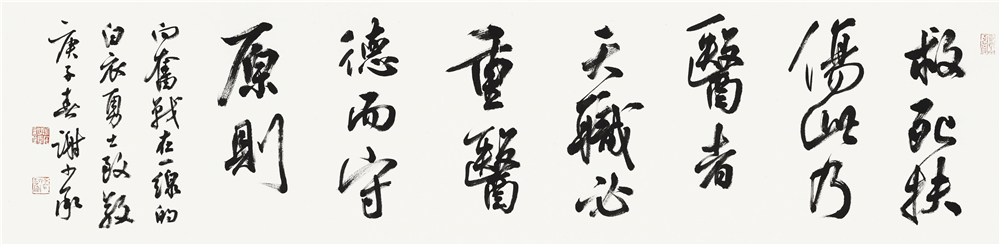 救死扶
傷此乃
醫者
天職必
重醫
德而守
原則
向奮戰在一線的
白衣勇士致敬
庚子春謝少承